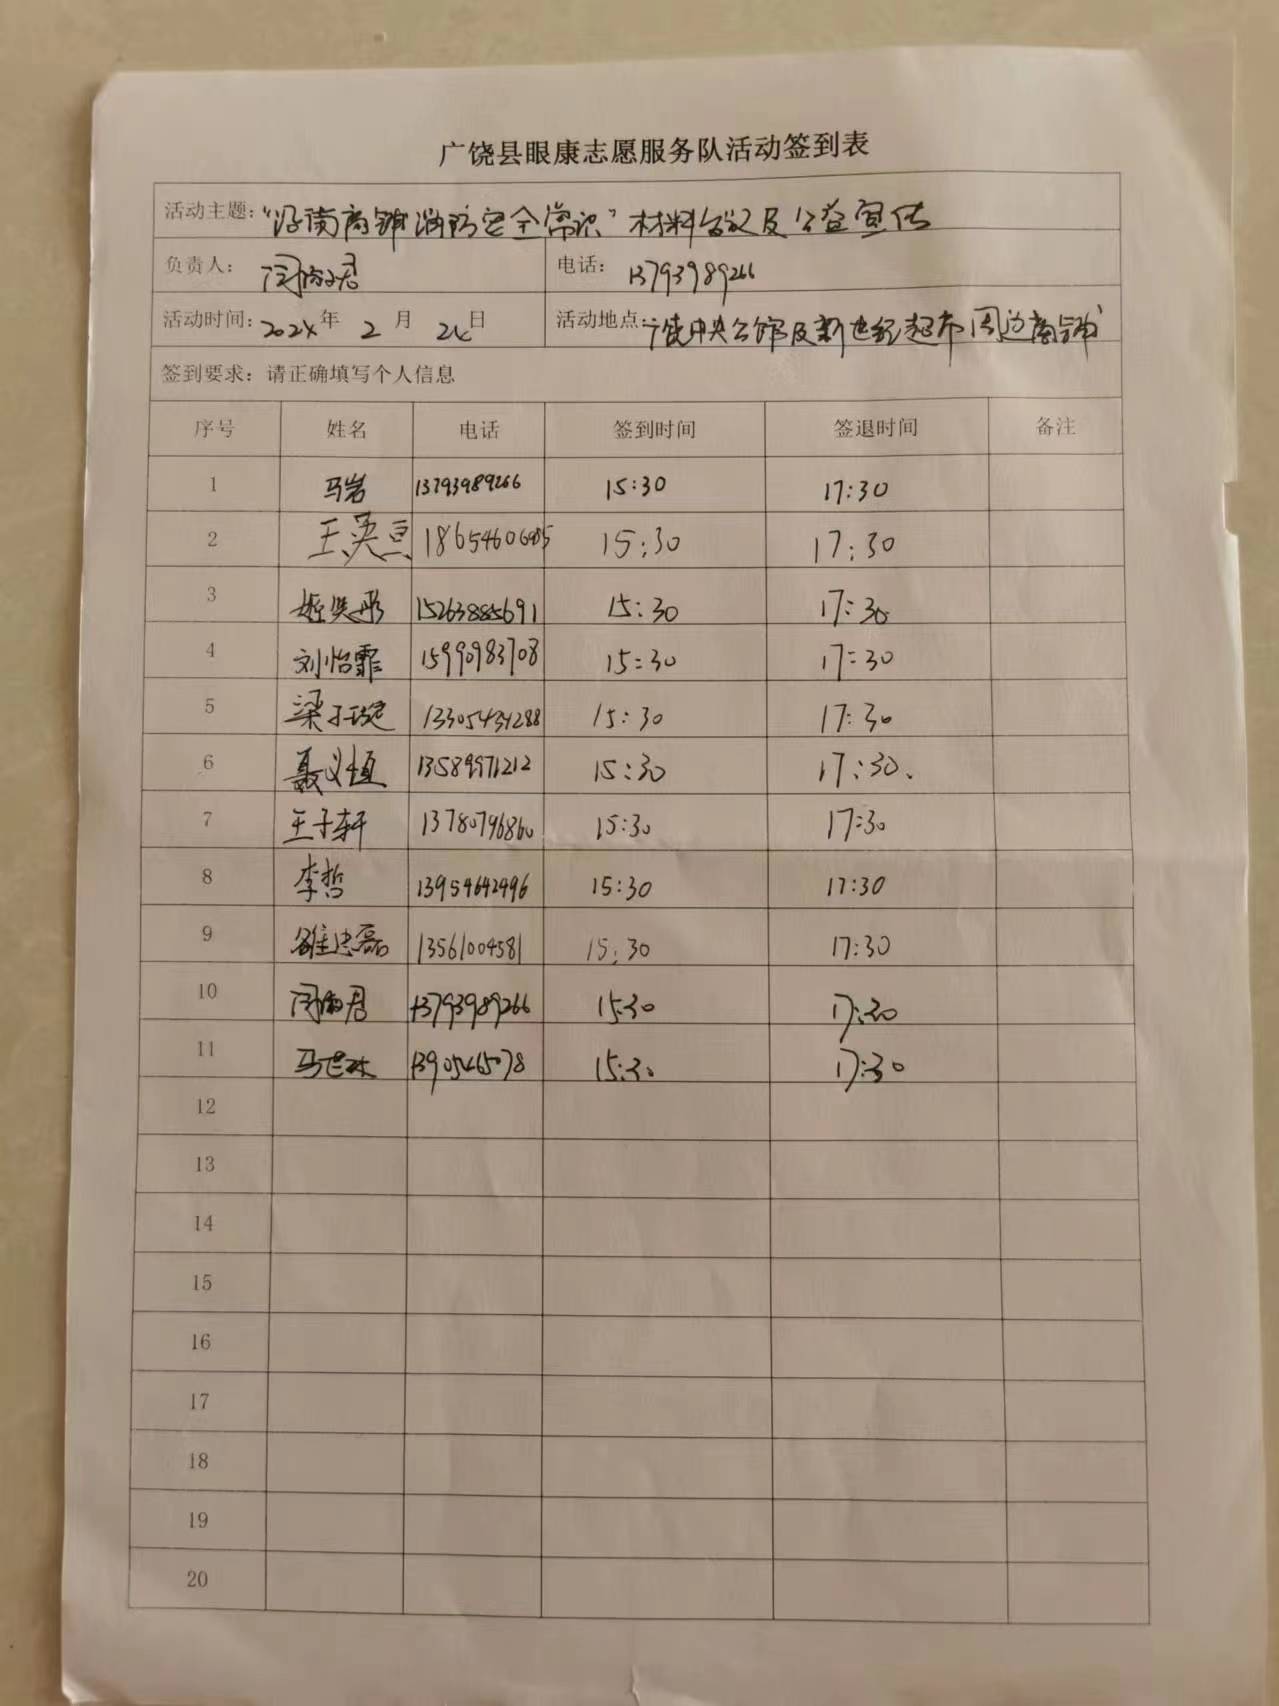 广饶县眼康志愿服务队活动签到表
活动主题：“沿街商铺消防安全常识”材料分发及公益宣传
负责人： 电话： 13793989266
活动时间：2024年 2 月 24日 活动地点：广饶中央公馆及新世纪超市周边商铺
签到要求：请正确填写个人信息
序号 姓名 电话 签到时间 签退时间 备注
1 马岩 13793989266 15:30 17:30
2 王英豆 15:30 17:30
3 15263885691 15:30 17:30
4 刘怡霏 15990983708 15:30 17:30
5 15:30 17:30
6 聂义恒 13589971212 15:30 17:30.
7 王子轩 13780796860 15:30 17:30
8 李哲 13954642496 15:30 17:30
9 13561004581 15:30 17:30
10 13793989266 15:30 17:30
11 15:30 17:30
12
13
14
15
16
17
18
19
20